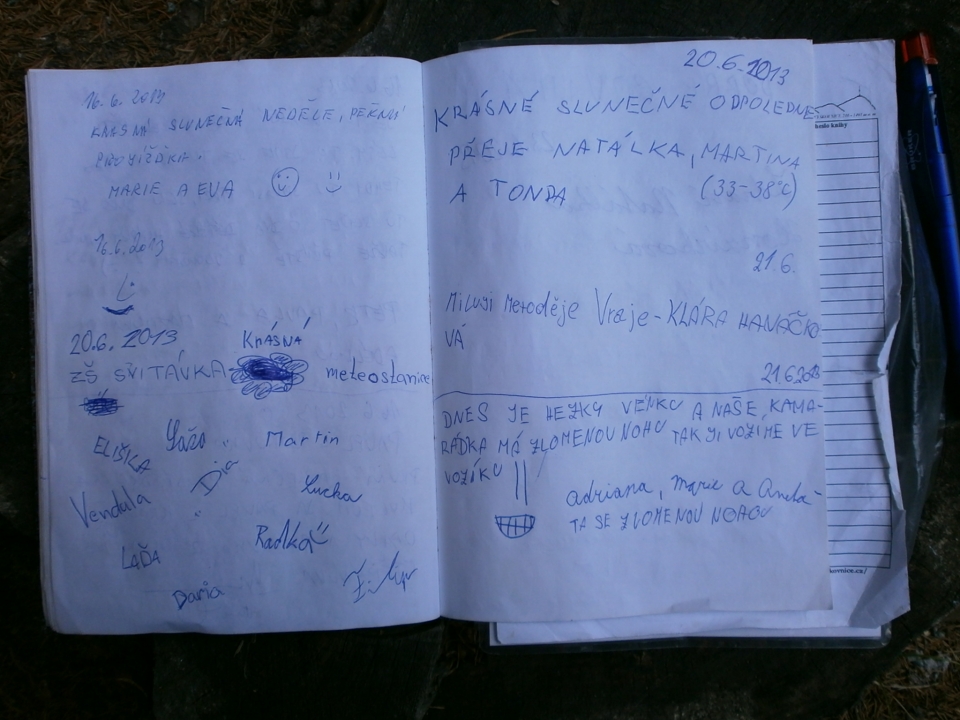 16.6.2013
KRÁSNÁ SLUNEČNÁ NEDĚLE, PĚKNÁ
PROJÍŽĎKA.
MARIE A EVA
16.6.2013
20.6.2013
KRÁSNÁ
ZŠ SVITÁVKA - meteostanice
ELIŠKA
Martin
Dia
Lucka
Vendula
Radka
LAĎA
Daria
20.6.2013
KRÁSNÉ SLUNEČNÉ ODPOLEDNE
PŘEJE NATÁLKA, MARTINA
A TONDA (33-38°C)
21.6.
Milují Meroděje Vraje - KLÁRA HANÁČKO
VÁ
21.6.2013
DNES JE HEZKY VENKU A NAŠE KAMA-
RÁDKA MÁ ZLOMENOU NOHU TAK JI VOZÍME VE
VOZÍKU
adriana, Marie a Aneta -
TA SE ZLOMENOU NOHOU